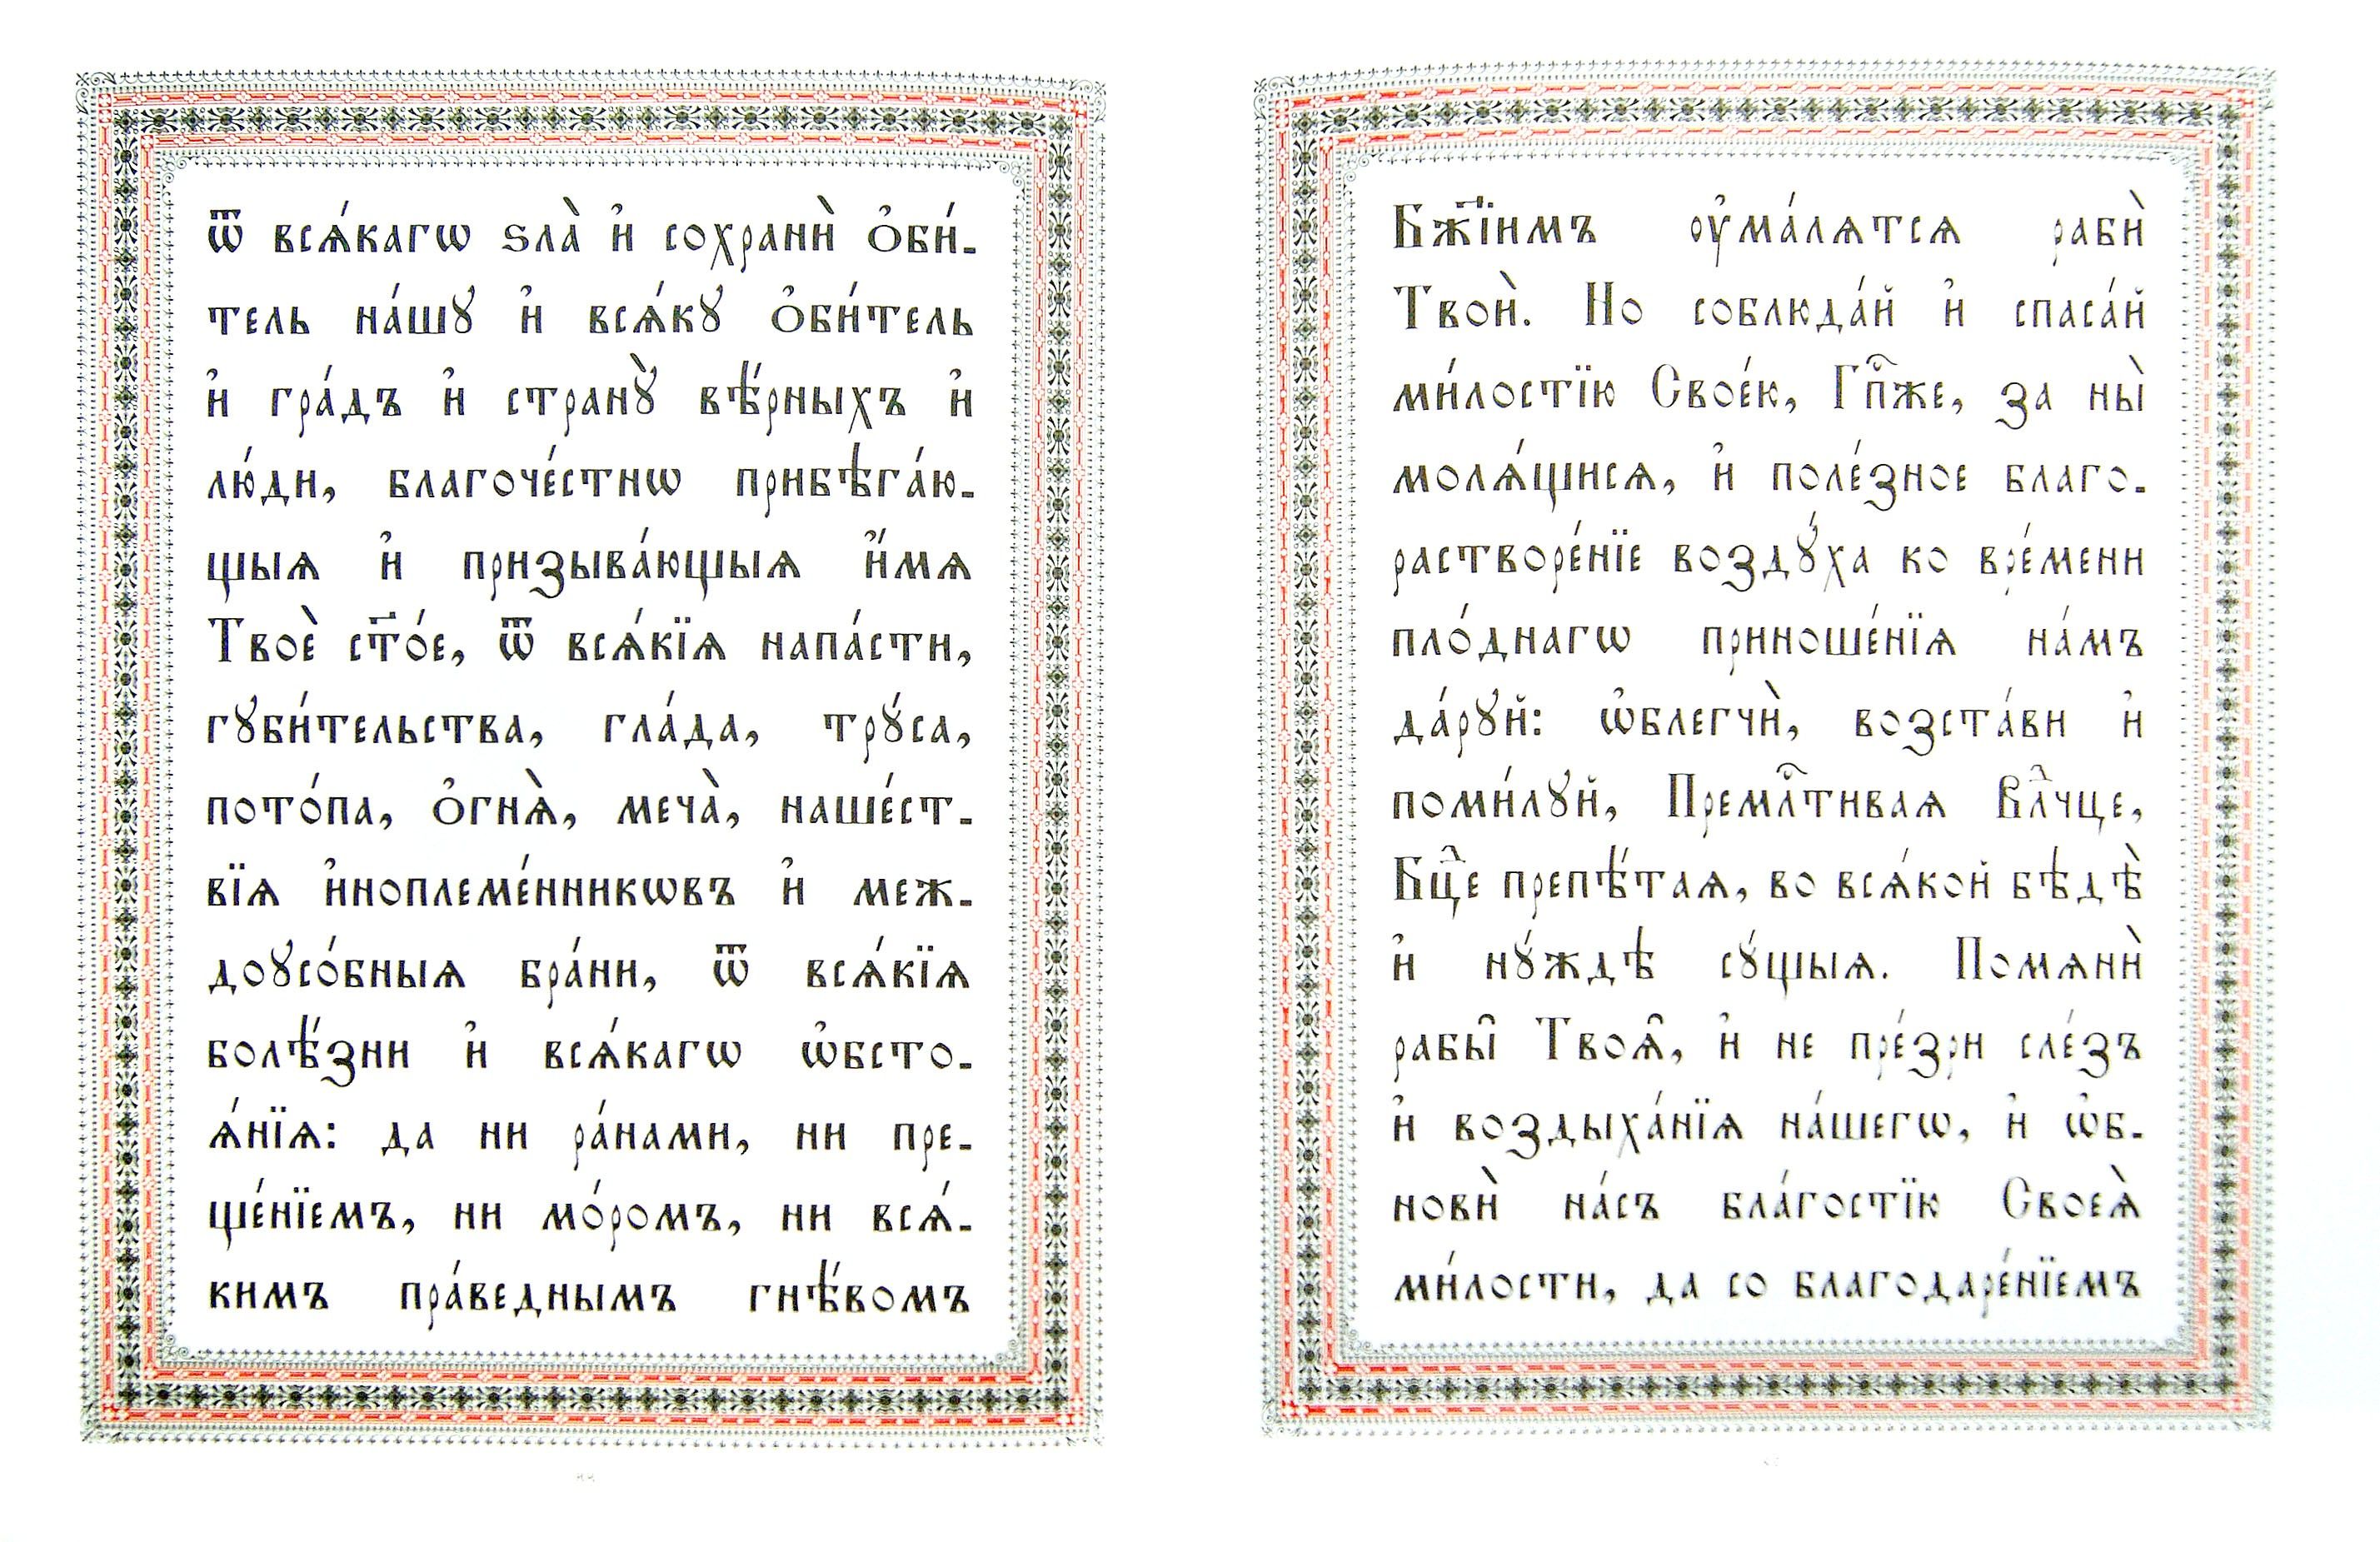 ѿ всѧ́кагѡ ѕла̀ и҆ сохранѝ ѻ҆би́-
тель на́шꙋ и҆ всѧ́кꙋ ѻ҆би́тель
и҆ гра́дъ и҆ странꙋ̀ вѣ́рныхъ и҆
лю́ди, благоче́стнѡ прибѣга́ю-
щыѧ и҆ призыва́ющыѧ и҆́мѧ
Твоѐ ст҃о́е, ѿ всѧ́кїѧ напа́сти,
гꙋби́тельства, гла́да, трꙋ́са,
пото́па, ѻ҆гнѧ̀, меча̀, наше́ст-
вїѧ и҆ноплеме́нникѡвъ и҆ меж-
доꙋсо́бныѧ бра́ни, ѿ всѧ́кїѧ
болѣ́зни и҆ всѧ́кагѡ ѡ҆бсто-
ѧ́нїѧ: да ни ра́нами, ни пре-
ще́нїемъ, ни мо́ромъ, ни всѧ́-
кимъ пра́веднымъ гнѣ́вомъ
Бж҃їимъ ѹ҆ма́лѧтсѧ рабѝ
Твоѝ. Но соблюда́й и҆ спаса́й
ми́лостїю Свое́ю, Гп҃же, за ны̀
молѧ́щисѧ, и҆ поле́зное благо-
растворе́нїе воздꙋ́ха ко вре́мени
пло́днагѡ приноше́нїѧ на́мъ
да́рꙋй: ѡ҆блегчѝ, возста́ви и҆
поми́лꙋй, Премⷭ҇тиваѧ Влⷣчце,
Бцⷣе препѣ́таѧ, во всѧ́кой бѣдѣ̀
и҆ нꙋ́ждѣ сꙋ́щыѧ. Помѧнѝ
рабы̑ Твоѧ̑, и҆ не пре́зри сле́зъ
и҆ воздыха́нїѧ на́шегѡ, и҆ ѡ҆б-
новѝ на́съ бла́гостїю Своеѧ̀
ми́лости, да со благодаре́нїемъ